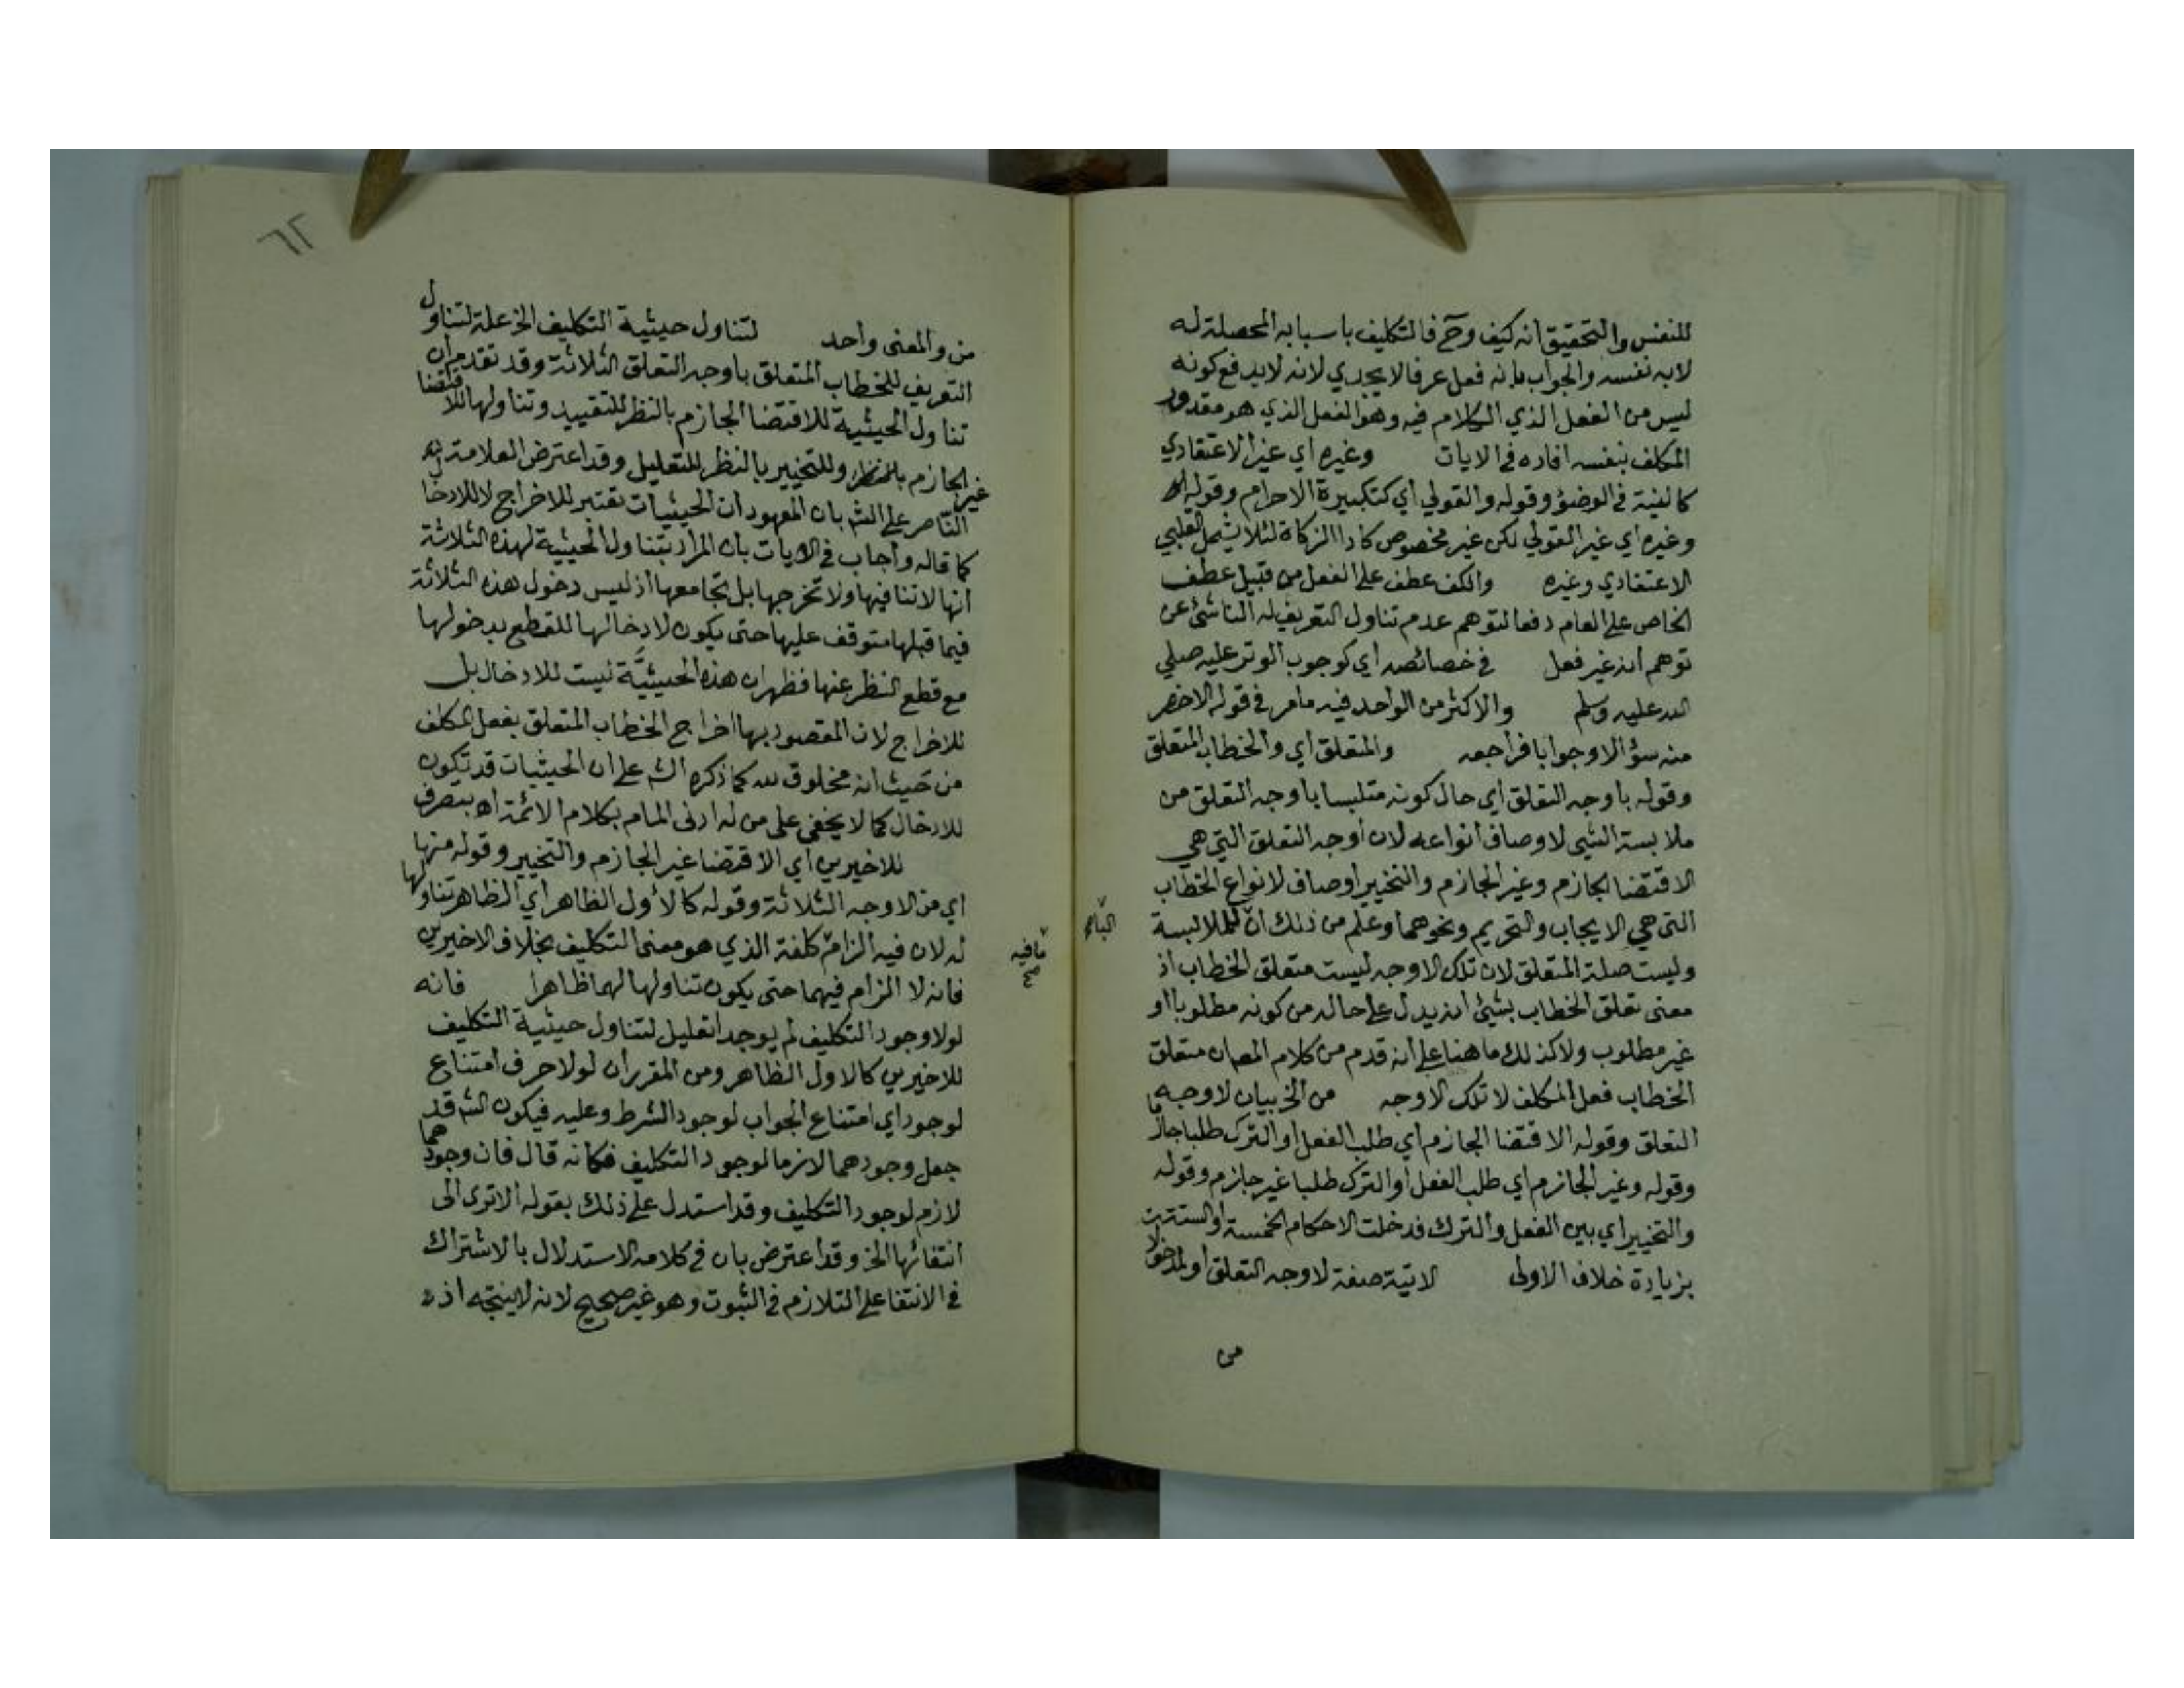 للنفس والتحقيق انه كيف وح فالتكليف باسبابه المحصلة له
لابه نفسه والجواب بانه فعل عرفا لا يجدي لانه لا يدفع كونه
ليس من الفعل الذي الكلام فيه وهو الفعل الذي هو مقدور
المكلف بنفسه افاده في الايات وغيره اي غير الاعتقادي
كالنية في الوضؤ وقوله والقولي اي كتكبيرة الاحرام وقوله
وغيره اي غير القولي لكن غير مخصوص كاداالزكاة لئلا يشمل القلبي
الاعتقادي وغيره والكف عطف على الفعل من قبيل عطف
الخاص على العام دفعا لتوهم عدم تناول التعريف له الناشئ عن
توهم انه غير فعل في خصائصه اي كوجوب الوتر عليه صلى
الله عليه وسلم والاكثر من الواحد فيه مامر في قوله الاخصر
منه سؤالا وجوابا فراجعه والمتعلق اي والخطاب المتعلق
وقوله باوجه التعلق اي حال كونه متلبسا باوجه التعلق من
ملابسة الشيى لاوصاف انواعه لان اوجه التعلق التي هي
الاقتضا الجازم وغير الجازم والتخيير اوصاف لانواع الخطاب
التي هي الايجاب والتحريم ونحوهما وعلم من ذلك ان للملابسة
الباء
وليست صلة المتعلق لان تلك الاوجه ليست متعلق الخطاب اذ
معنى تعلق الخطاب بشيئ انه يدل على حاله من كونه مطلوبا او
غير مطلوب ولا كذلك ما هنا على انه قدم من كلام المص ان متعلق
الخطاب فعل المكلف لا تلك الاوجه من الخ بيان لاوجه
التعلق وقوله الاقتضا الجازم اي طلب الفعل او الترك طلبا جازما
وقوله وغير الجازم اي طلب الفعل او الترك طلبا غير جازم وقوله
والتخيير اي بين الفعل والترك فدخلت الاحكام الخمسة او الستة
بزيادة خلاف الاولى الاتية صفة لاوجه التعلق او لمدخول
من
٦٢
من والمعنى واحد لتناول حيثية التكليف الخ علة لتناول
التعريف للخطاب المتعلق باوجه التعلق الثلاثة وقد تقدم ان
تناول الحيثية للاقتضا الجازم بالنظر للتقييد وتناولها للاقتضا
غير الجازم بالنظر وللتخيير بالنظر للتعليل وقد اعترض العلامة
الناصر على الش بان المعهود ان الحيثيات تعتبر للاخراج لا للادخال
كما قاله واجاب في الايات بان المراد بتناول الحيثية لهذه الثلاثة
انها لا تنافيها ولا تخرجها بل تجامعها اذ ليس دخول هذه الثلاثة
فيما قبلها متوقف عليها حتى يكون لادخالها للقطع بدخولها
مع قطع النظر عنها فظهر ان هذه الحيثية ليست للادخال بل
للاخراج لان المقصود بها اخراج الخطاب المتعلق بفعل المكلف
من حيث انه مخلوق لله كما ذكره الش على ان الحيثيات قد تكون
للادخال كما لا يخفى على من له ادنى المام بكلام الائمة اه بتصرف
للاخيرين اي الاقتضا غير الجازم والتخيير وقوله منها
اي من الاوجه الثلاثة وقوله كالاول الظاهر اي الظاهر تناولها
له لان فيه الزام كلفة الذي هو معنى التكليف بخلاف الاخيرين
مافيه
صح
فانه لا الزام فيهما حتى يكون تناولها لهما ظاهرا فانه
لولا وجود التكليف لم يوجد تعليل لتناول حيثية التكليف
للاخيرين كالاول الظاهر ومن المقرر ان لولا حرف امتناع
لوجود اي امتناع الجواب لوجود الشرط وعليه فيكون الش قد
جعل وجودهما لازما لوجود التكليف فكانه قال فان وجودهما
لازم لوجود التكليف وقد استدل على ذلك بقوله الا ترى الى
انتفائهما الخ وقد اعترض بان في كلامه الاستدلال بالاشتراك
في الانتفا على التلازم في الثبوت وهو غير صحيح لانه لا ينتجه اذ